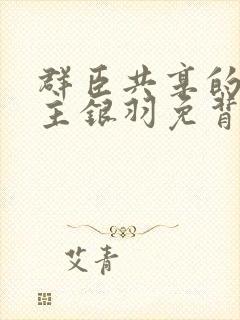 群臣共享的
主银羽免背
艾青